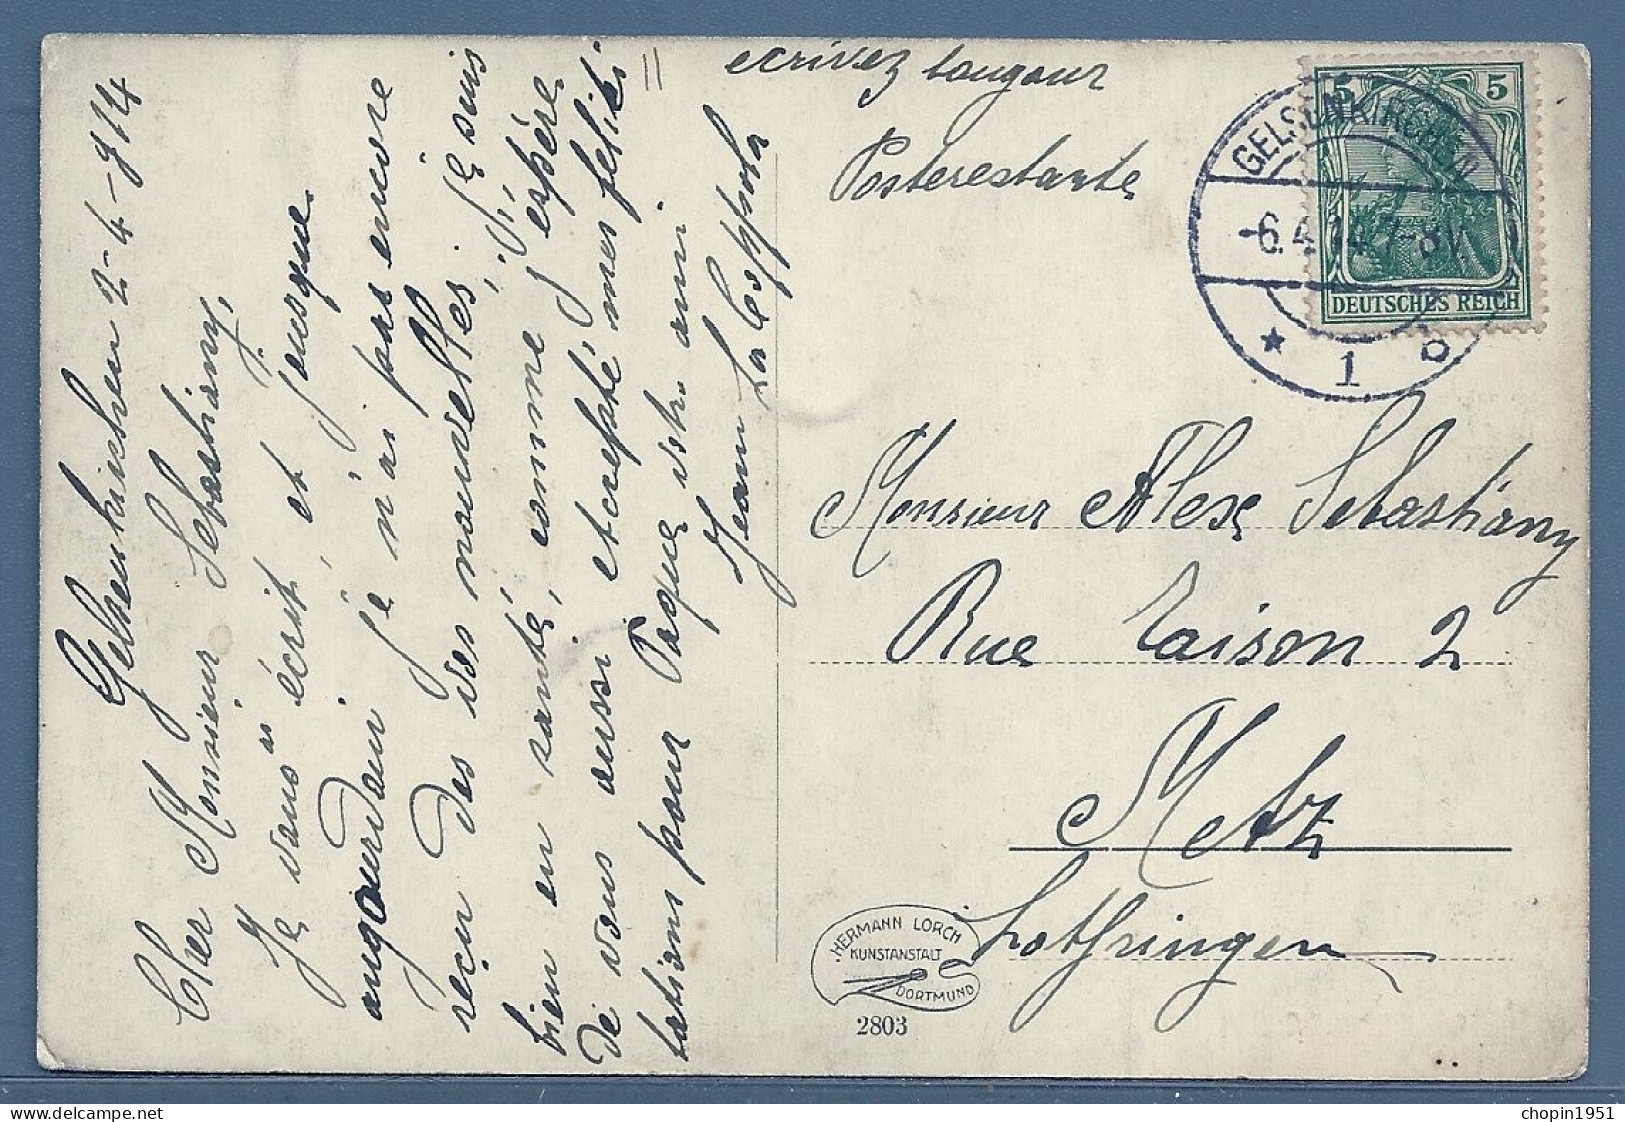 Gelsenkirschen 2-4-914
Cher Monsieur Sebastiany,
Je vous ás écrit et jousque
augourdaui je n'ai pas encore
reçu des vos nouvelles; je suis
bien en santé, comme j'espére
de vous aussi et accepté mes feliki=
tations pour Paque votr. ami
Jean La
ecrivez tougour
Posterestante
5 5
DEUTSCHES REICH
GELSENKIRCHEN
-6.4.14.7-8V.
* 1 b
Monsieur Alex Sebastiany
Rue Taison 2
Metz
Lothringen
HERMANN LORCH
KUNSTANSTALT
DORTMUND
2803
chopin1951